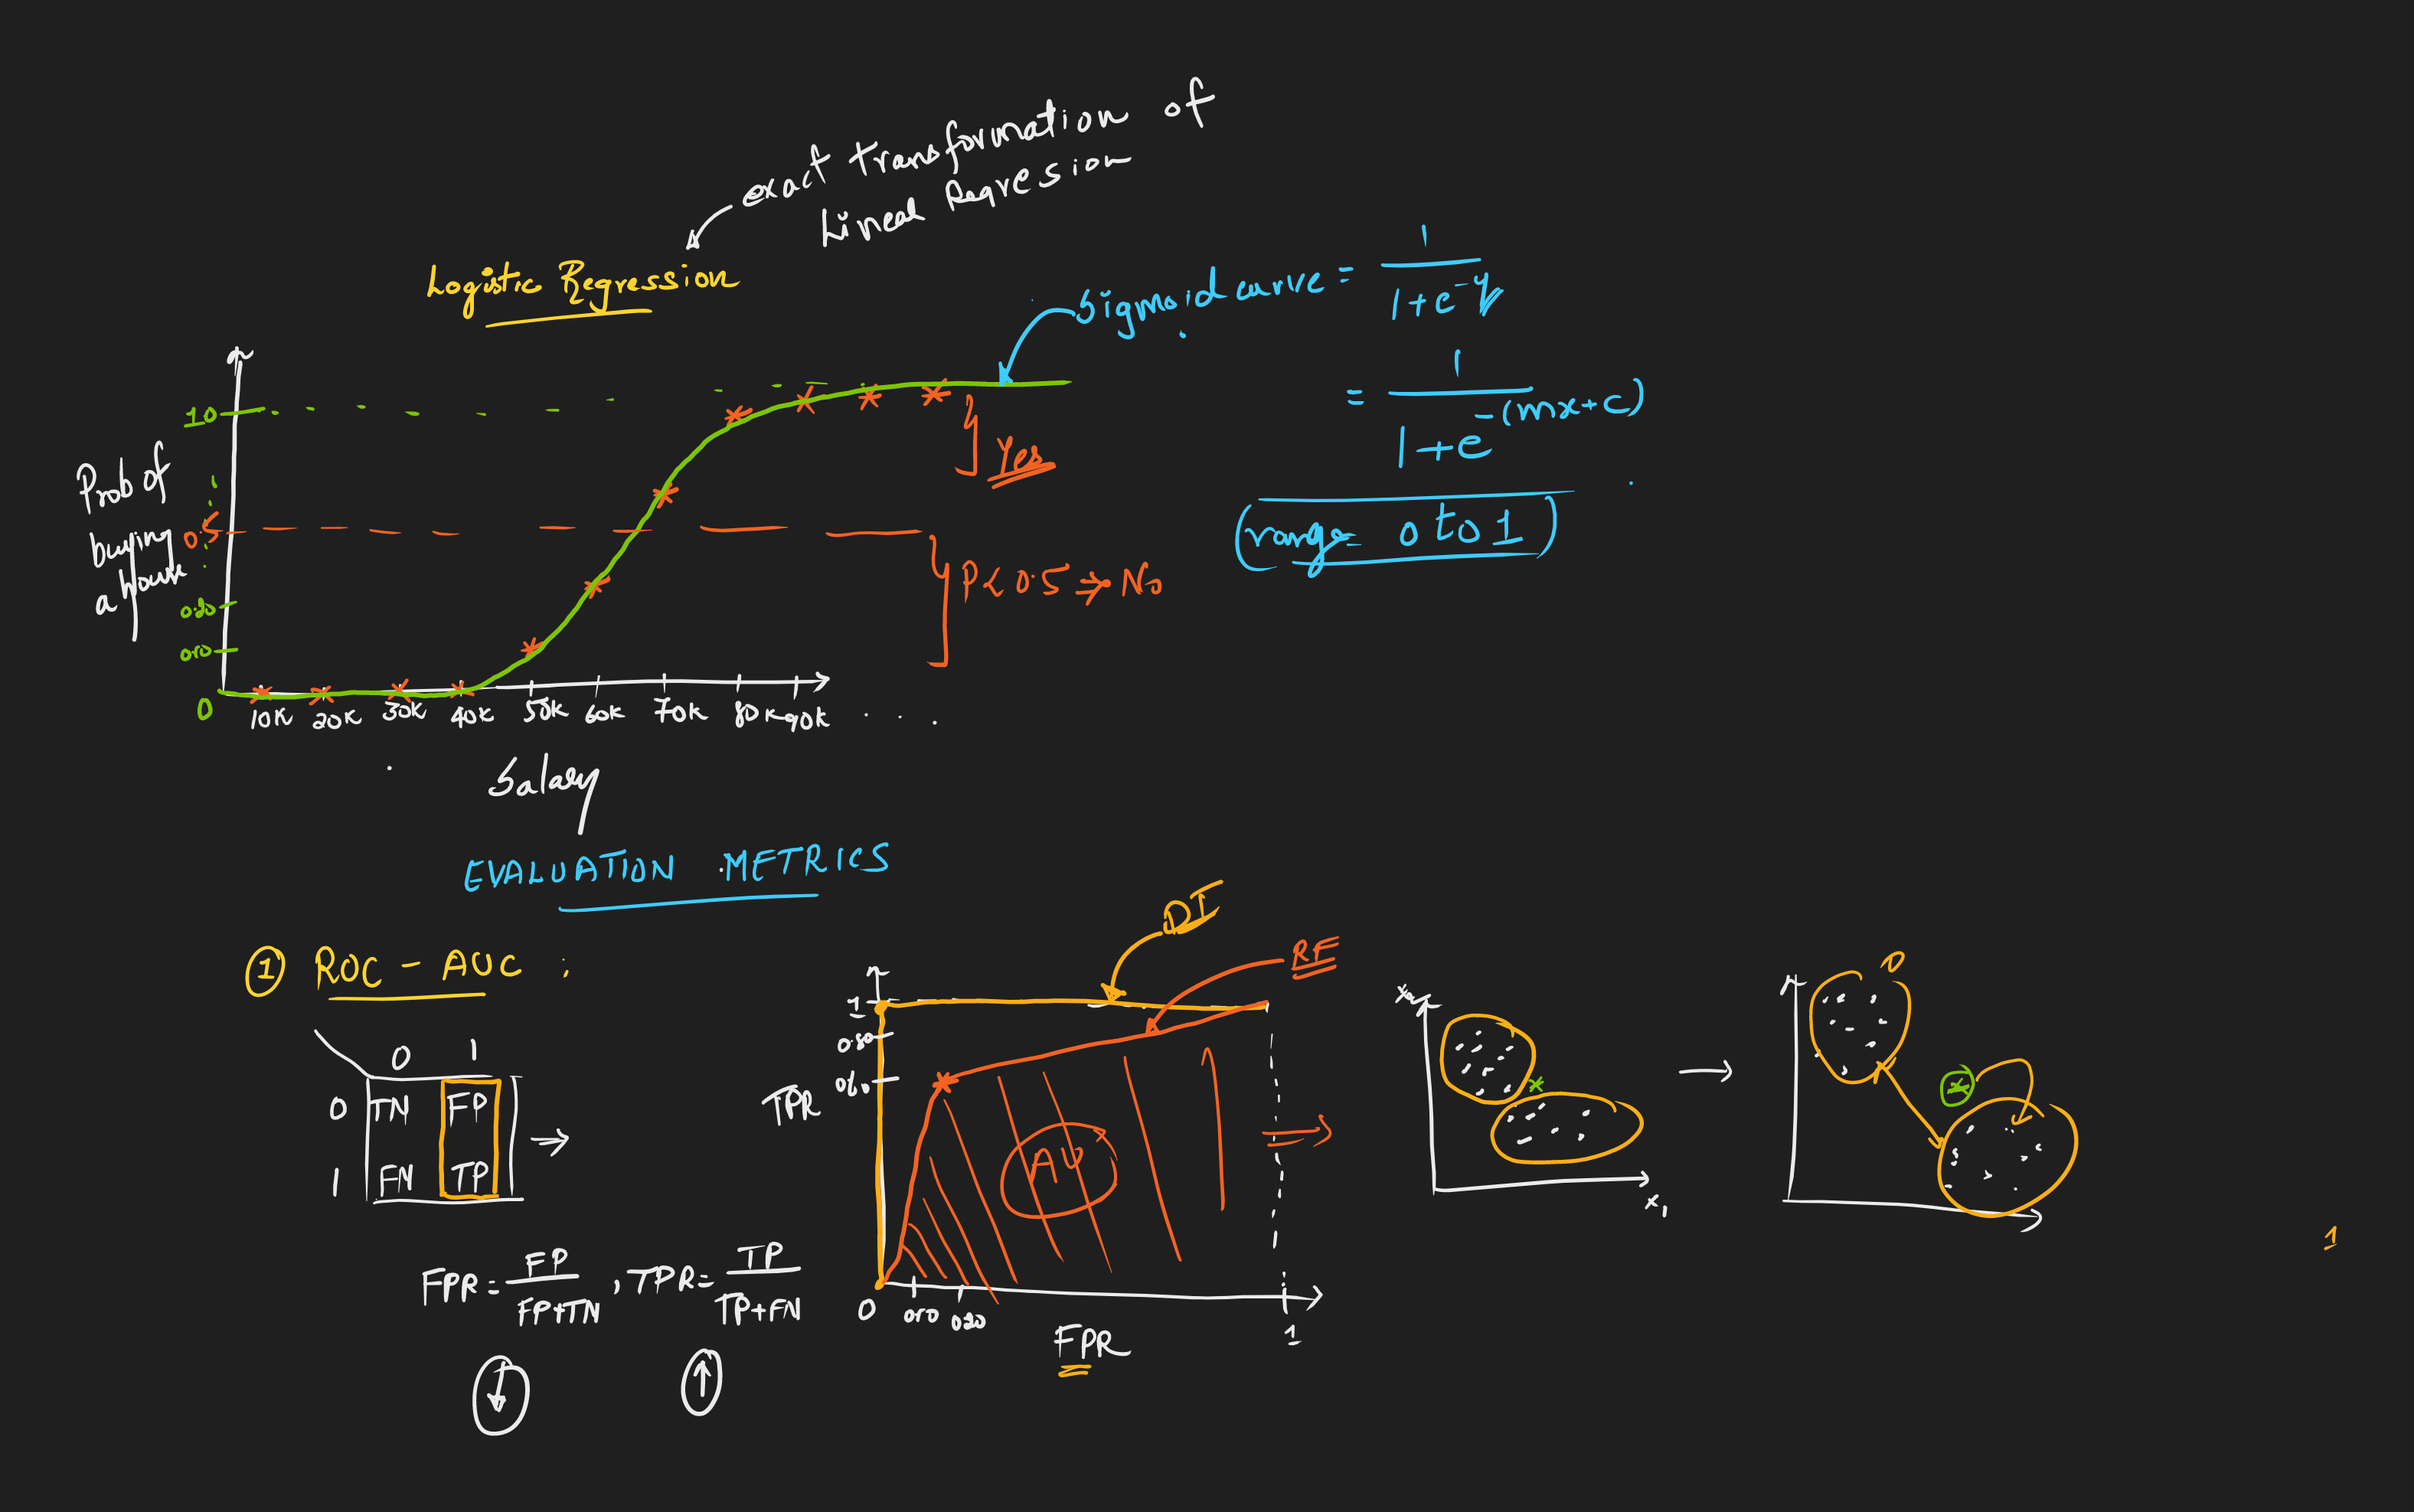 exact transformation of
Linear Regression
Logistic Regression
Sigmoid curve = 1
1+e^-y
= 1
1+e^-(mx+c)
(range = 0 to 1)
1.0
Prob of
buying
a house
0.5
0.20
0.10
0
Yes
P<0.5 → No
10K 20K 30K 40K 50K 60K 70K 80K 90K . . .
Salary
EVALUATION METRICS
① ROC - AUC :
0 1
0 TN FP
1 FN TP
→
FPR = FP
FP+TN
, TPR = TP
TP+FN
↓ ↑
DT
RF
1
0.80
TPR
0 0.10 0.20 1
FPR
x₂
x₁
→
0
1